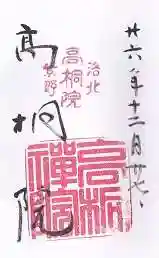 廿六年十二月廿七日
洛北
高桐院
紫野
高桐
禪院
高桐院